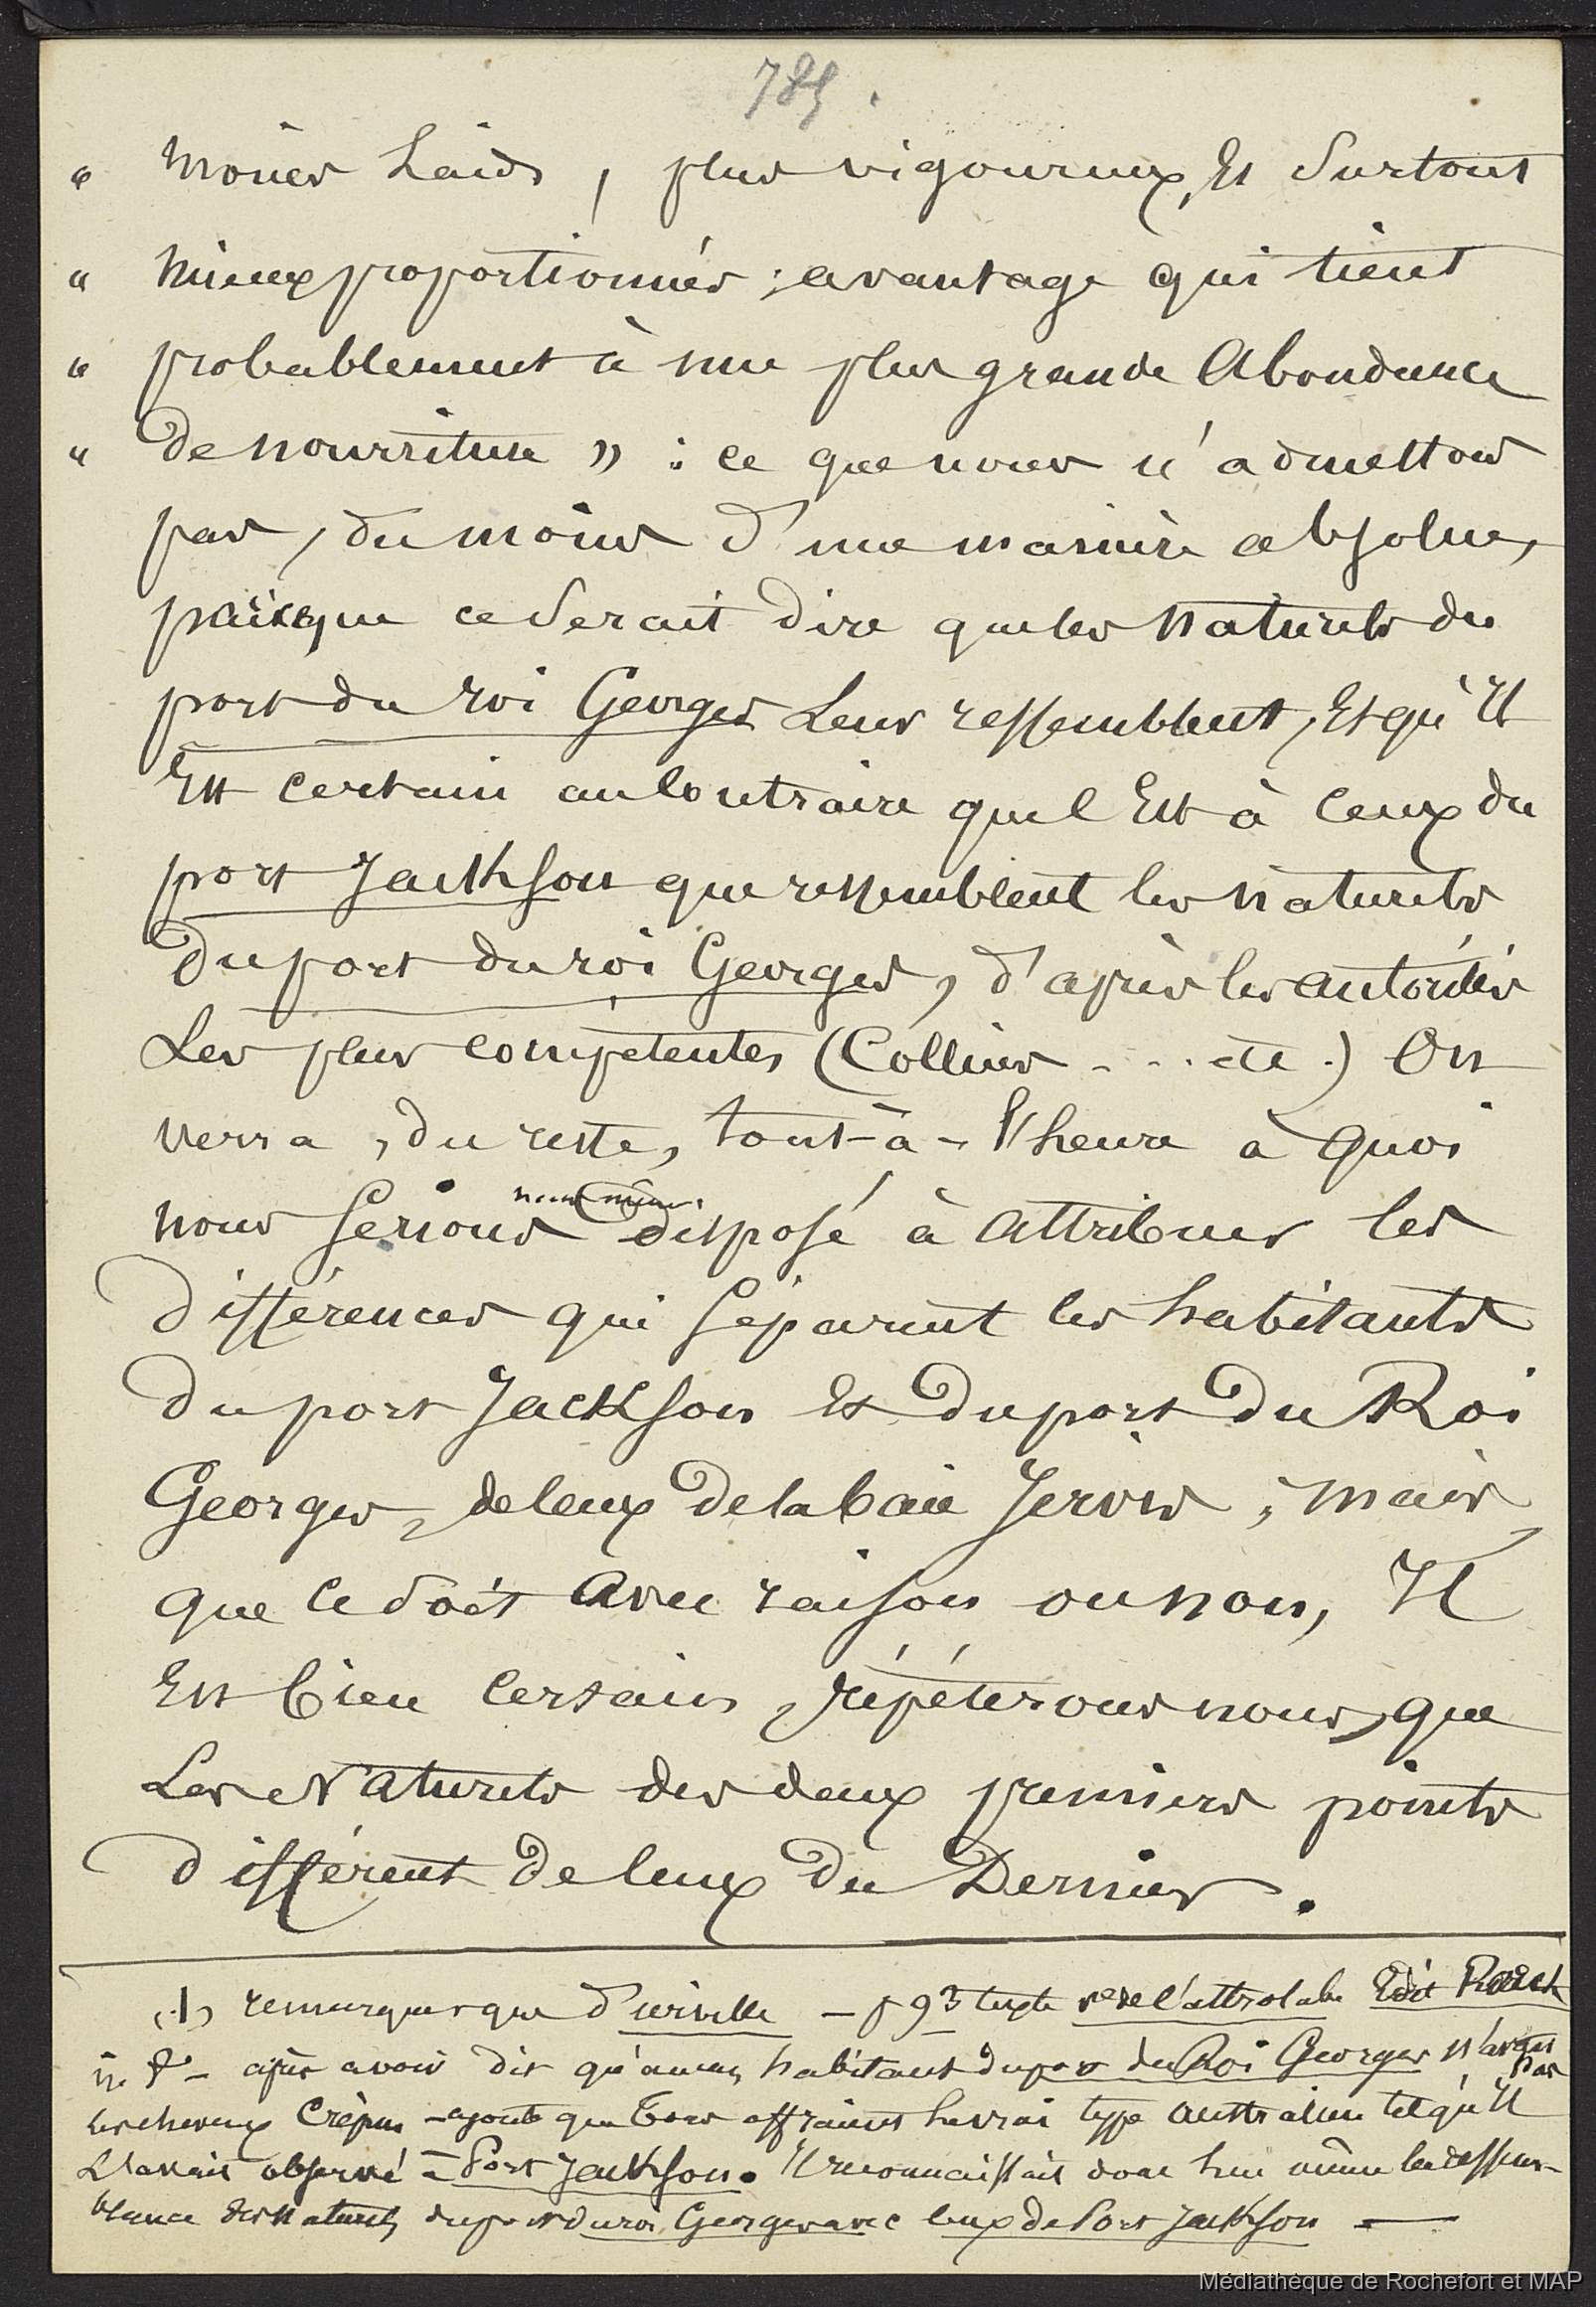 785.
" moins laids, plus vigoureux, Et Surtout
" mieux proportionnés ; avantage qui tient
" probablement à une plus grande Abondance
" de nourriture » : ce que nous n'admettons
pas, du moins d'une manière absolue,
puisque ce Serait dire que les naturels du
port du roi Georges Leur ressemblent, Et qu'Il
Est certain au Contraire que c'Est à Ceux du
port Jackson que ressemblent les naturels
du port du roi Georges, d'après les autorités
Les plus compétentes (Collins . . . etc.) On
verra, du reste, tout-à-l'heure à quoi
nous Serions nous même disposé à attribuer les
différences qui Séparent les habitants
du port Jackson Et du port du Roi
Georges, de ceux de la baie Jervis ; mais
que ce Soit avec raison ou non, Il
Est bien Certain, répéterons nous, que
Les Naturels des deux premiers points
diffèrent de ceux du Dernier.
(1) remarquer que d'urville – p 93 texte vge de l'astrolabe
– après avoir dit qu'aucun habitant du port du Roi Georges n'avait pas
les cheveux Crépus – ajoute que tous offraient le vrai type australien tel qu'Il
L'avait observé à Port Jackson. Il reconnaissait donc lui même la ressem-
blance des naturels du port du roi Georges avec ceux de Port Jackson —
Médiathèque de Rochefort et MAP